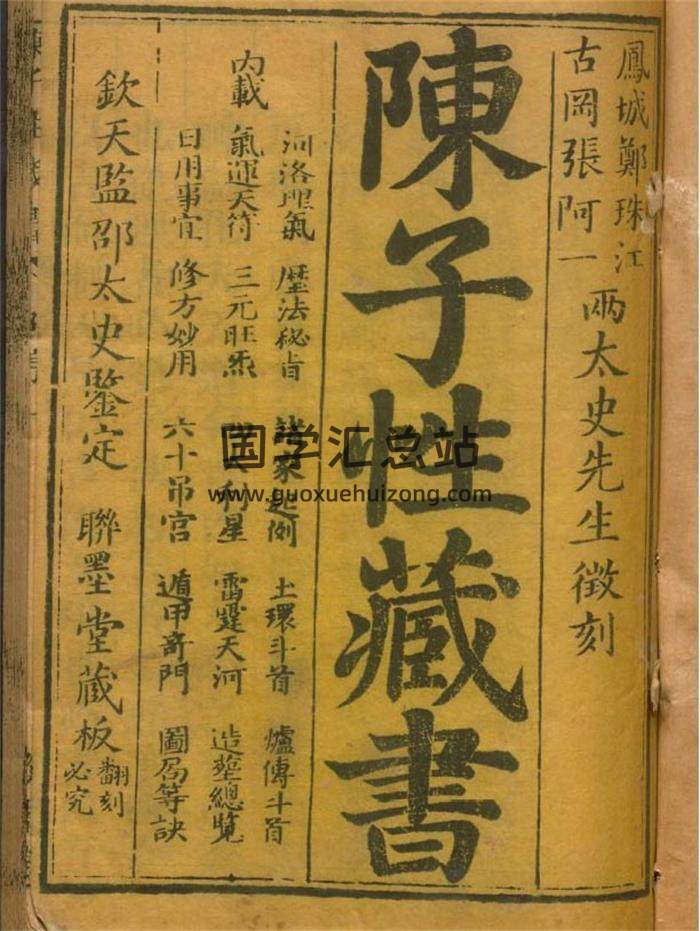 鳳城鄭珠江
古岡張阿一
兩太史先生徵刻
陳子性藏書
內載
河洛理氣 曆法秘旨 諸家起例 土環斗首 爐傳斗首
氣運天符 三元旺炁 利星 雷霆天河 造塟總覽
日用事宜 修方妙用 六十吊宮 遁甲奇門 圖局等訣
欽天監邵太史鑒定 聯墨堂藏板
翻刻
必究
国学汇总站
www.guoxuehuizong.com